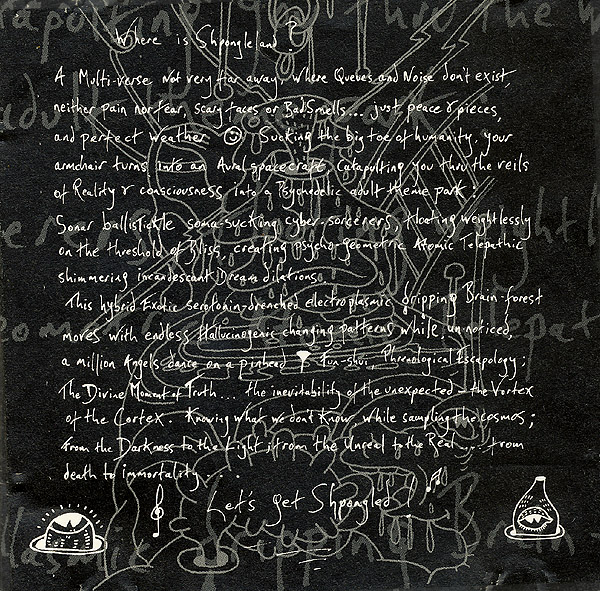 Where is Shpongleland?
A Multi-verse not very far away, where Queues and Noise don't exist,
neither pain nor fear, scary faces or BadSmells... just peace & pieces,
and perfect weather ☺ Sucking the big toe of humanity, your
armchair turns into an Aural spacecraft Catapulting you thru the veils
of Reality & consciousness into a Psychedelic adult theme park:
Sonar ballistickle soma-sucking cyber-sorcerers, floating weightlessly
on the threshold of Bliss, creating psycho-geometric Atomic Telepathic
shimmering incandescant Dream dilations.
This hybrid Exotic serotonin-drenched electroplasmic dripping Brain-forest
moves with endless Hallucinogenic changing patterns while, un-noticed,
a million Angels dance on a pinhead Fun-shui, Phrenological Escapology;
The Divine Moment of Truth... the inevitability of the unexpected - the Vortex
of the Cortex. Knowing what we don't Know while sampling the cosmos;
from the Darkness to the Light, from the Unreal to the Real .... from
death to immortality . . .
Let's get Shpongled !